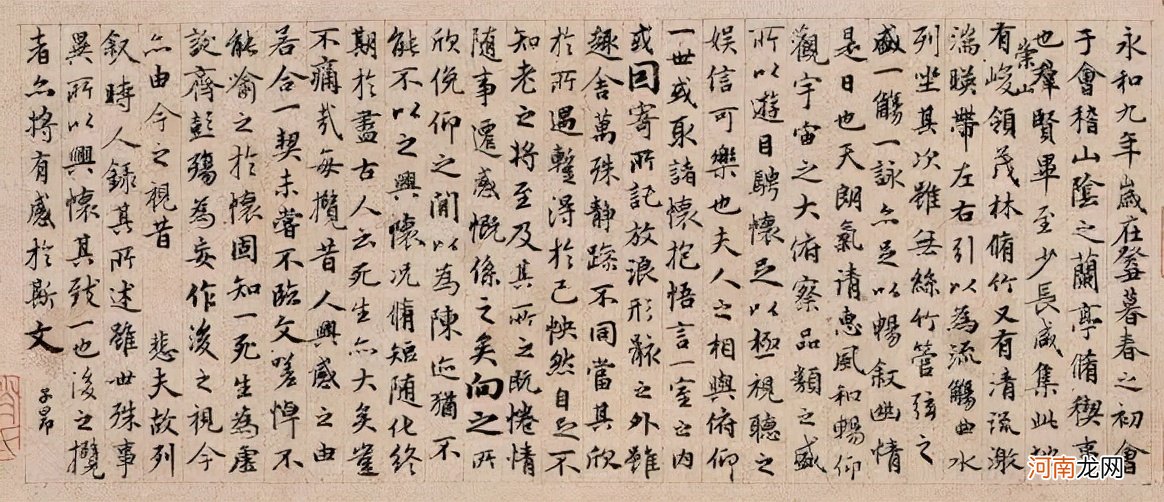 永和九年歲在癸暮春之初會
于會稽山陰之蘭亭脩禊事
也羣賢畢至少長咸集此地
有崇山峻領茂林脩竹又有清流激
湍暎帶左右引以為流觴曲水
列坐其次雖無絲竹管弦之
盛一觴一詠亦足以暢叙幽情
是日也天朗氣清惠風和暢仰
觀宇宙之大俯察品類之盛
所以遊目騁懷足以極視聽之
娛信可樂也夫人之相與俯仰
一世或取諸懷抱悟言一室之内
或因寄所託放浪形骸之外雖
趣舍萬殊静躁不同當其欣
於所遇蹔得於己怏然自足不
知老之將至及其所之既惓情
随事遷感慨係之矣向之所
欣俛仰之閒以為陳迹猶不
能不以之興懷况脩短随化終
期於盡古人云死生亦大矣豈
不痛哉每攬昔人興感之由
若合一契未嘗不臨文嗟悼不
能喻之於懷固知一死生為虛
誕齊彭殤為妄作後之視今
亦由今之視昔 悲夫故列
叙時人録其所述雖世殊事
異所以興懷其致一也後之攬
者亦將有感於斯文
子昂
河南龙网